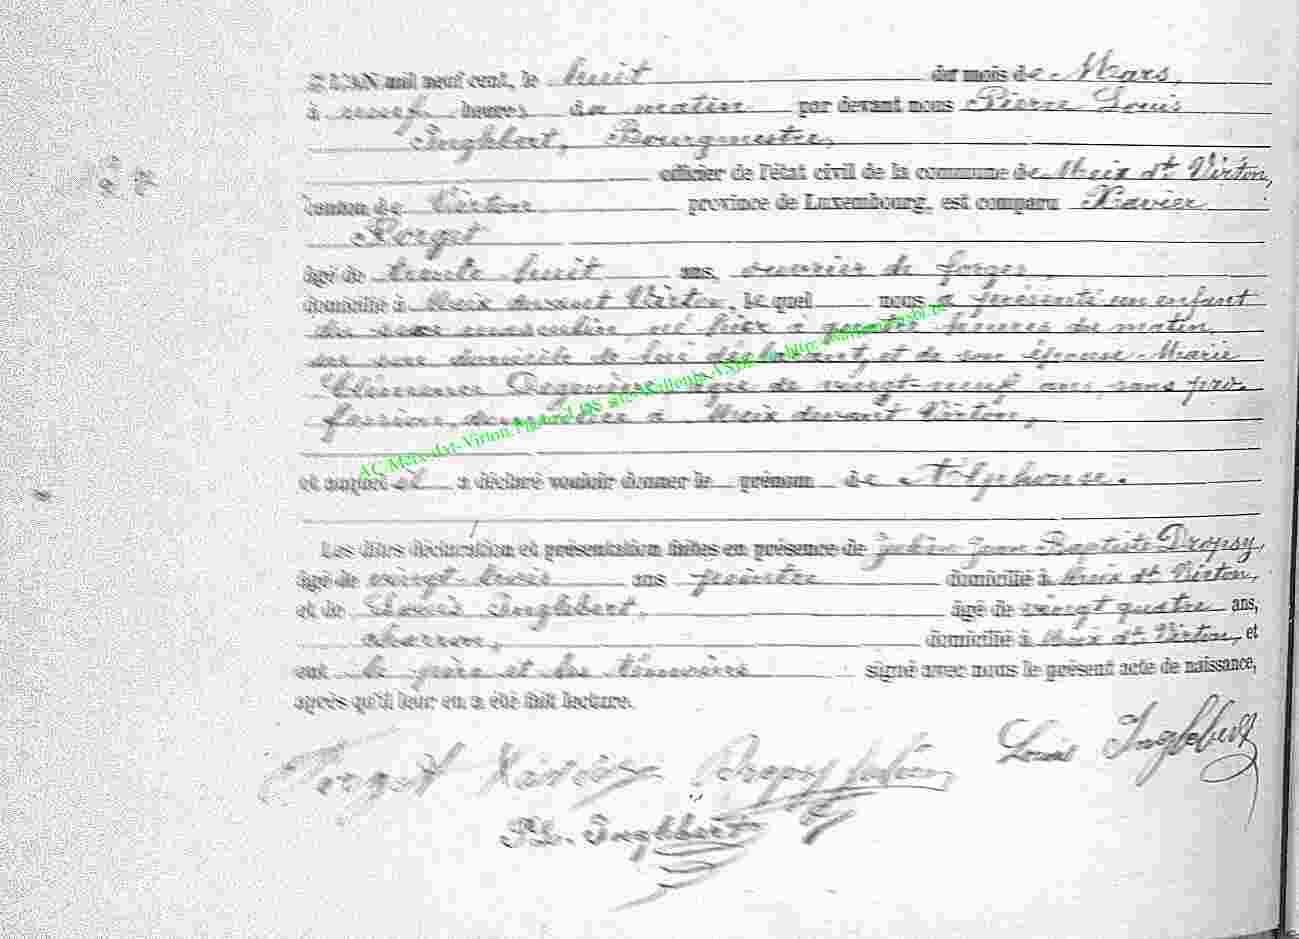 L'AN mil neuf cent, le huit du mois de Mars,
à neuf heures du matin par devant nous Pierre Louis
Inglebert, Bourgmestre,
officier de l'état civil de la commune de Meix dt Virton,
canton de Virton province de Luxembourg, est comparu Xavier
Forget
âgé de trente huit ans, ouvrier de forges,
domicilié à Meix devant Virton, lequel nous a présenté un enfant
du sexe masculin, né hier à heures du matin,
en son domicile de lui déclarant, et de son épouse Marie
Clémence âgée de vingt-neuf ans, sans pro-
fession, domiciliée à Meix devant Virton,
et auquel il a déclaré vouloir donner le prénom de Alphonse.
Les dites déclaration et présentation faites en présence de Julien Jean-Baptiste Dropsy,
âgé de vingt-trois ans peintre domicilié à Meix dt Virton,
et de Louis Inglebert, âgé de vingt quatre ans,
charron, domicilié à Meix dt Virton, et
ont le père et les témoins signé avec nous le présent acte de naissance,
après qu'il leur en a été fait lecture.
Forget Xavier Dropsy Julien Louis Inglebert
P.L. Inglebert